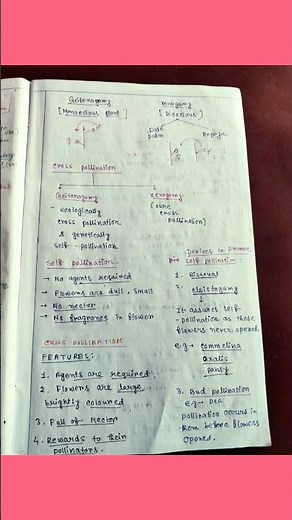 Geitonogamy
[Monoecious plant]
xenogamy
[Dioecious]
Date
palm
Papaya
cross pollination
Geitonogamy
- ecologically
cross pollination
& genetically
self-pollination
xenogamy
(true
cross
pollination)
Self pollination
→ No agents required
→ Flowers are dull, small
→ No nector
→ No fragrance in flower
Devices to promote
self pollination:
1. Bisexual
2. cleistogamy
It assures self-
pollination as those
flowers never opened.
e.g → commelina
oxalis
pansy
3. Bud pollination
e.g →
pollination occurs in
them before flowers
opened.
CROSS POLLINATION
FEATURES:
1. Agents are required
2. Flowers are large
brightly coloured
3. Full of Nector
4. Rewards to their
pollinators.